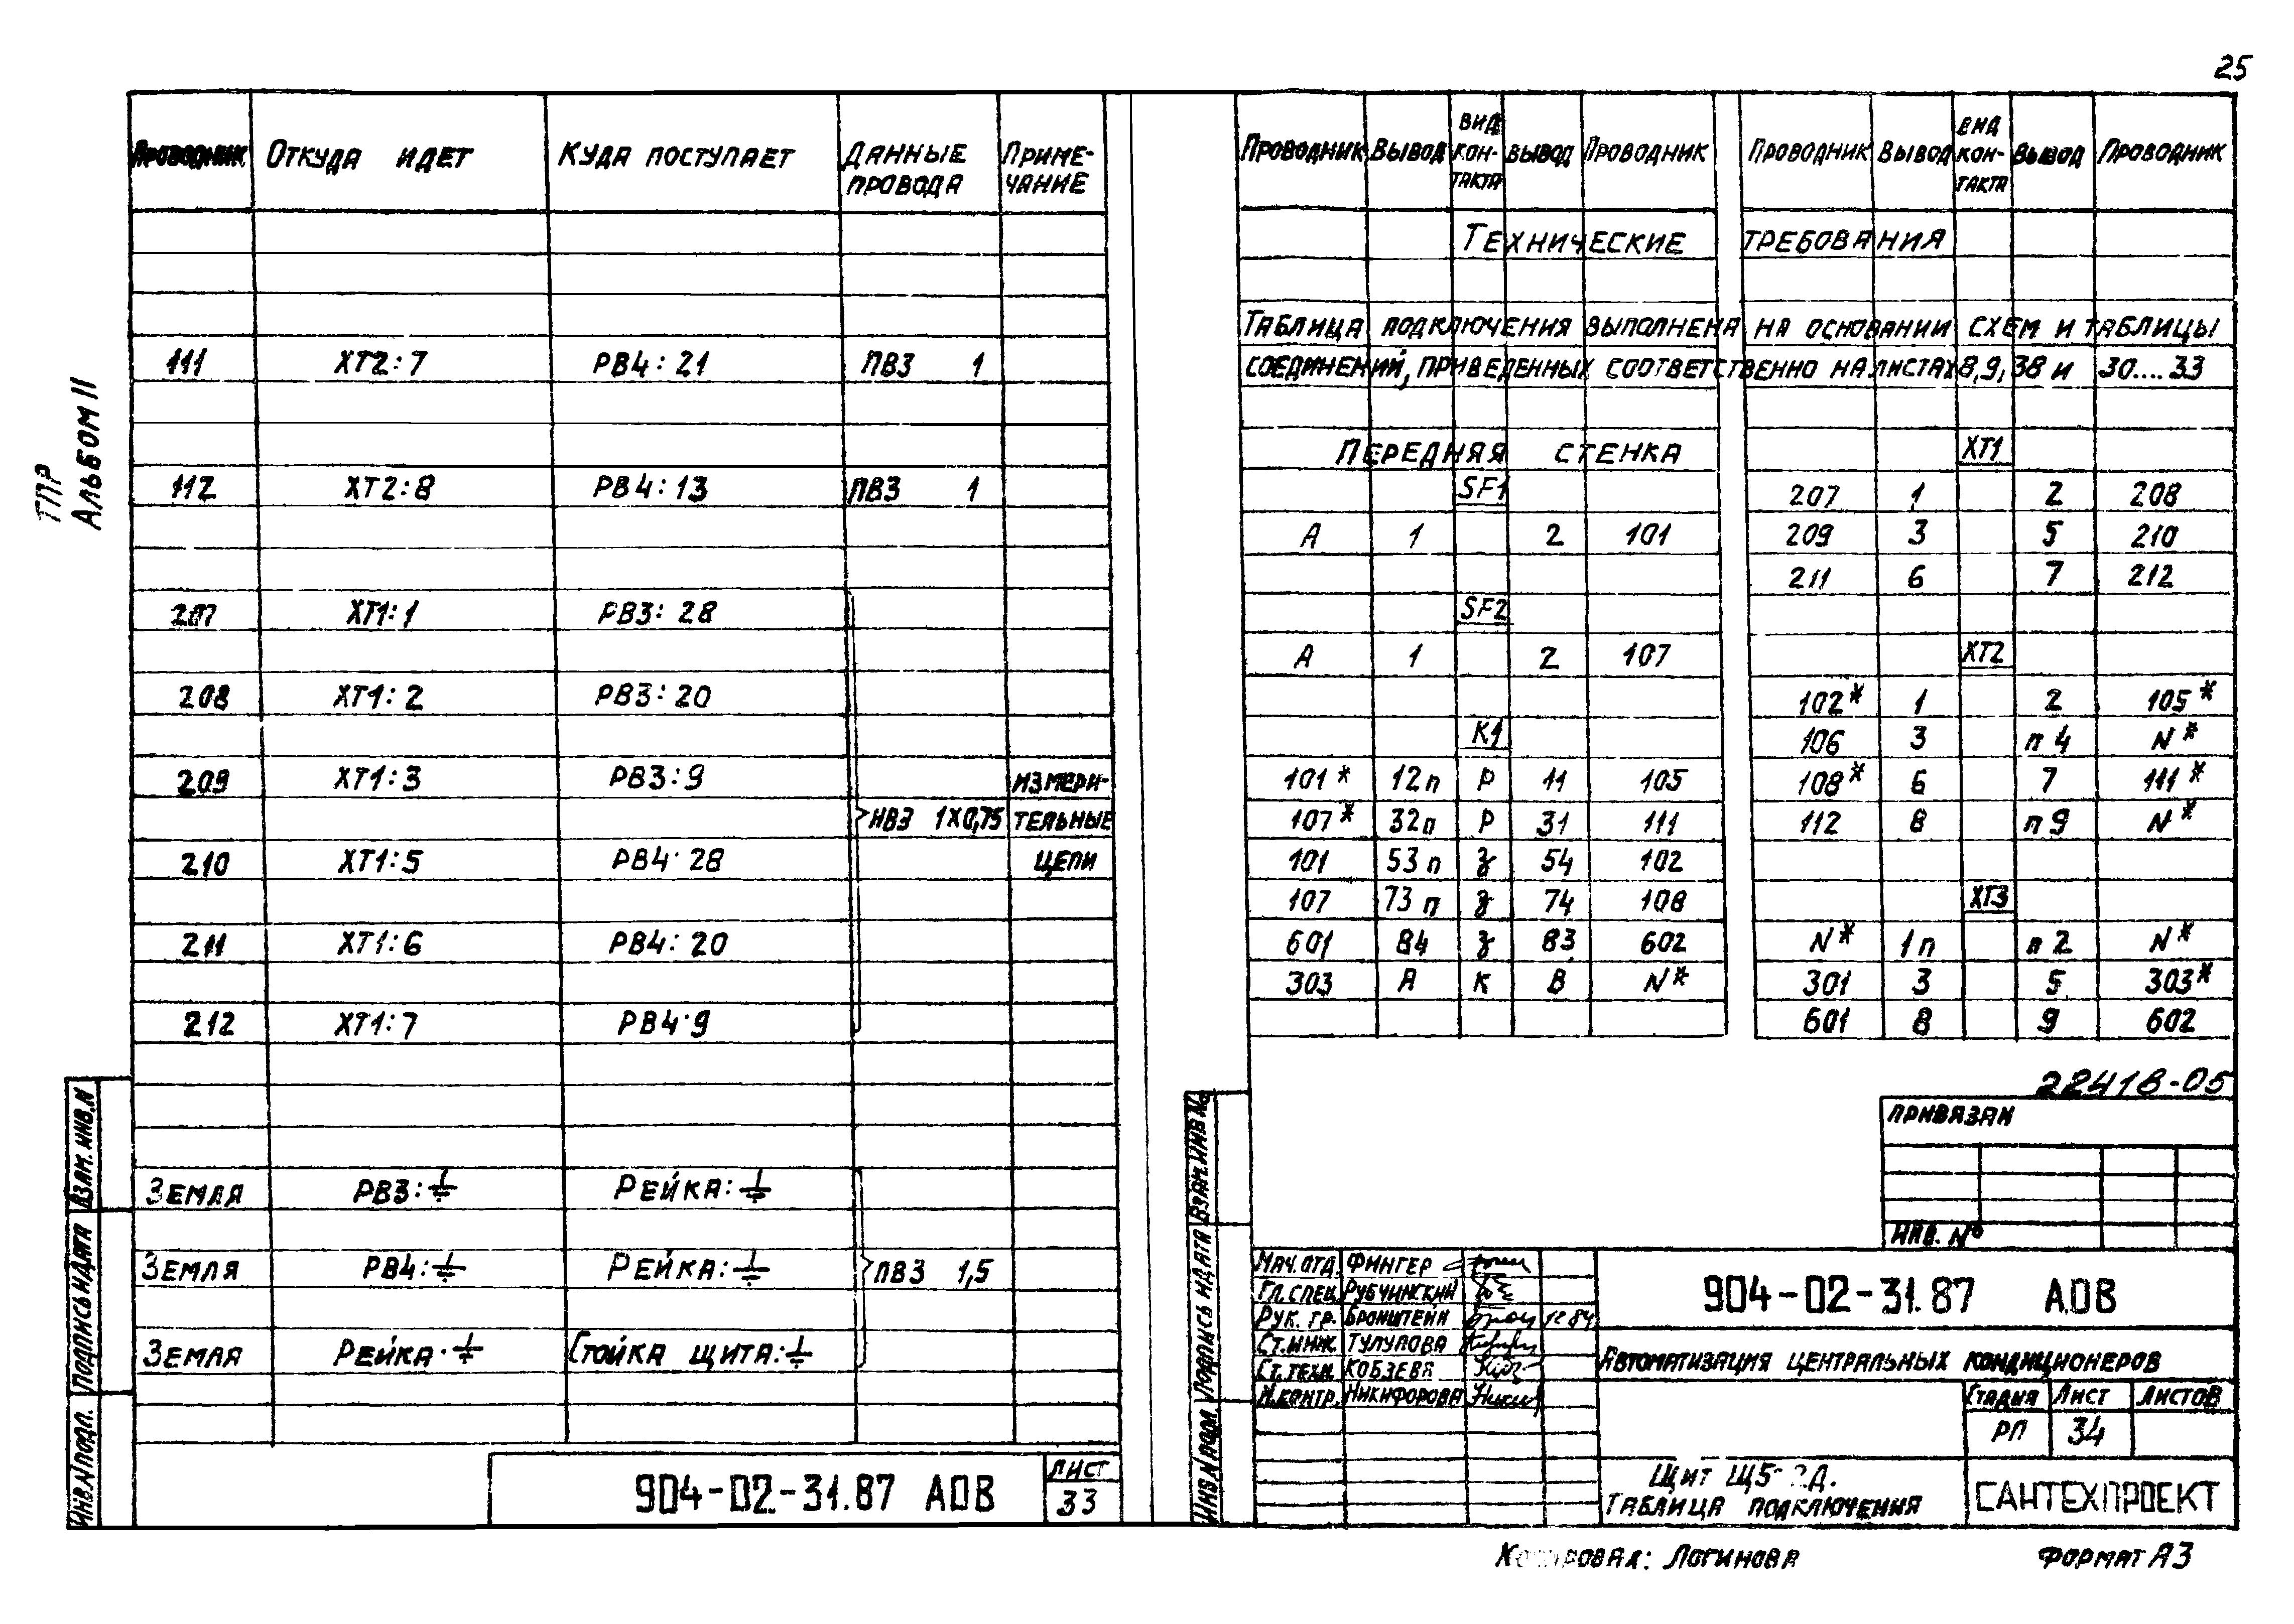 25
ТПР
Альбом II
Проводник Откуда идет Куда поступает Данные провода Приме-чание
111 XT2:7 РВ4:21 ПВ3 1
112 XT2:8 РВ4:13 ПВ3 1
207 XT1:1 РВ3:28
208 XT1:2 РВ3:20
209 XT1:3 РВ3:9 Измери-
НВ3 1Х0,75 тельные
210 XT1:5 РВ4:28 цепи
211 XT1:6 РВ4:20
212 XT1:7 РВ4:9
Земля РВ3:⏚ Рейка:⏚
Земля РВ4:⏚ Рейка:⏚ ПВ3 1,5
Земля Рейка:⏚ Стойка щита:⏚
904-02-31.87 АОВ
Лист
33
Взам. инв. N
Подпись и дата
Инв. N подл.
Проводник Вывод Вид кон-такта Вывод Проводник
Технические требования
Таблица подключения выполнена на основании схем и таблицы
соединений, приведенных соответственно на листах 8,9, 38 и 30....33
Передняя стенка
SF1
А 1 2 101
SF2
А 1 2 107
К1
101* 12п Р 11 105
107* 32п Р 31 111
101 53п з 54 102
107 73п з 74 108
601 84 з 83 602
303 А К В N*
Проводник Вывод Вид кон-такта Вывод Проводник
XT1
207 1 2 208
209 3 5 210
211 6 7 212
XT2
102* 1 2 105*
106 3 п4 N*
108* 6 7 111*
112 8 п9 N*
XT3
N* 1п п2 N*
301 3 5 303*
601 8 9 602
22418-05
Привязан
Инв. №
Взам. инв. N
Подпись и дата
Инв. N подл.
Нач. отд. Фингер
Гл. спец. Рубчинский
Рук. гр. Бронштейн
Ст. инж. Тулупова
Ст. техн. Кобзева
Н. контр. Никифорова
904-02-31.87 АОВ
Автоматизация центральных кондиционеров
Стадия Лист Листов
РП 34
Щит
Таблица подключения
САНТЕХПРОЕКТ
Копировал: Логинова
Формат А3